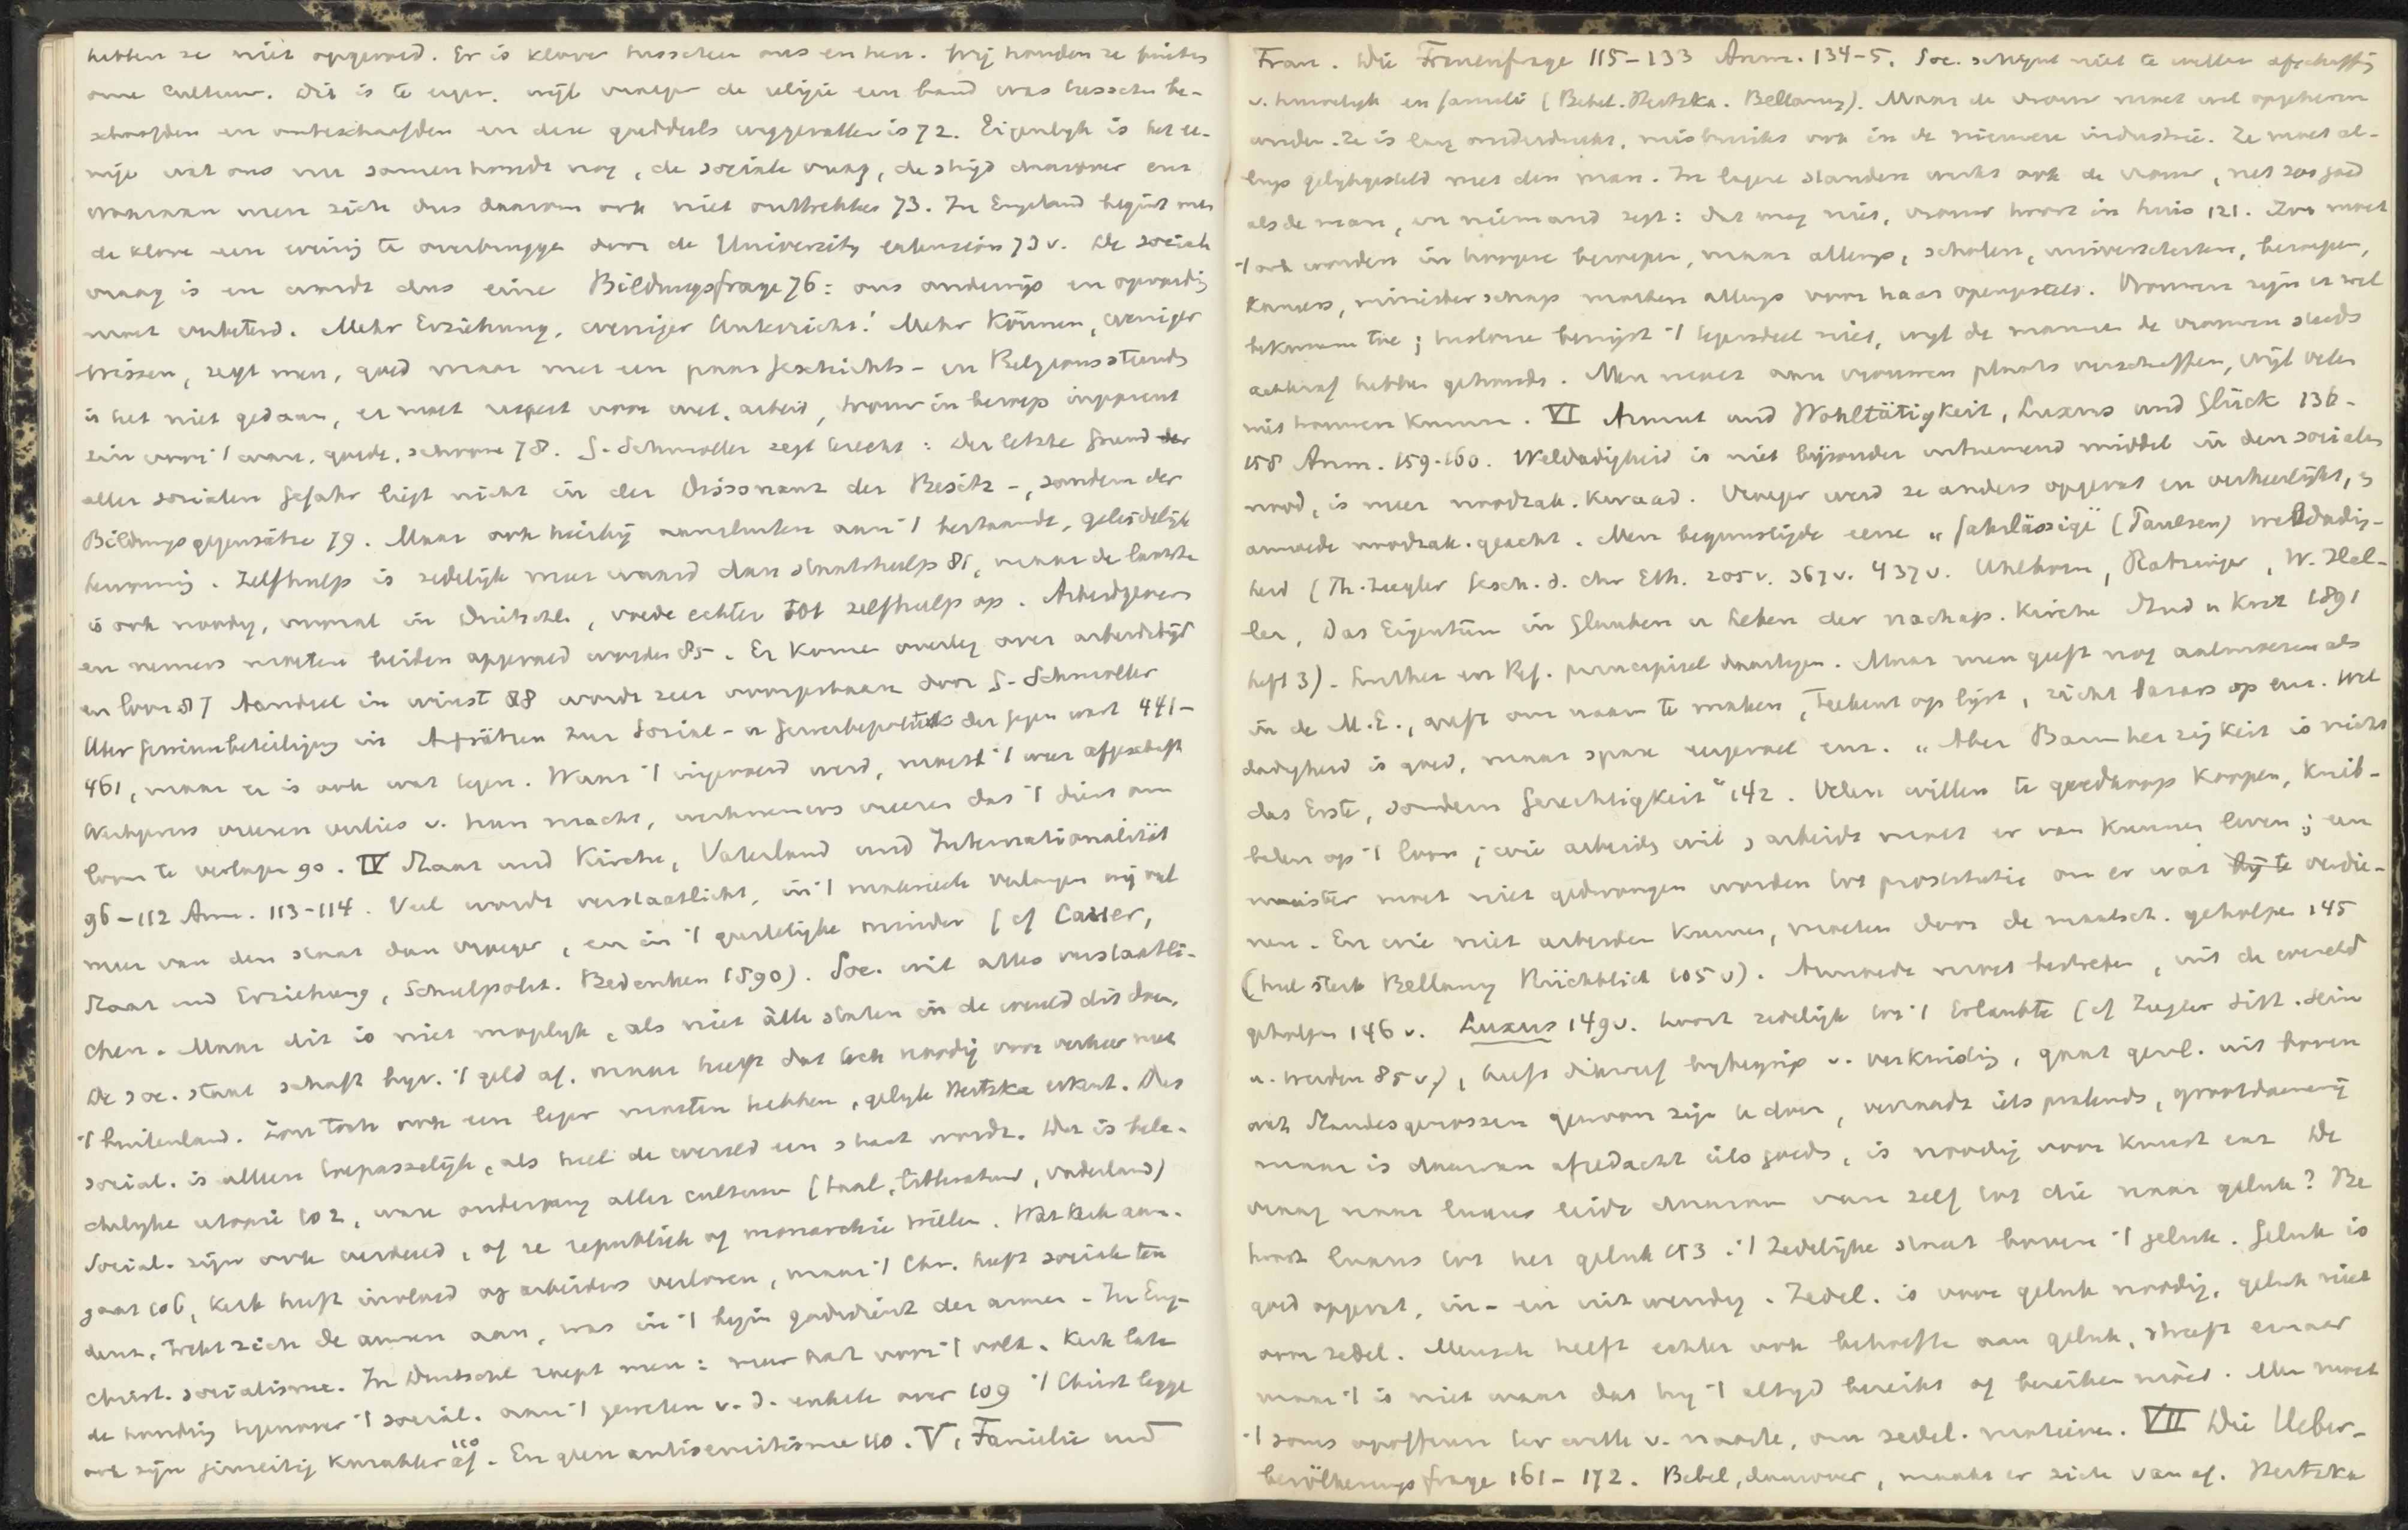 hebben ze niet opgevoed. Er is klove tusschen ons en hen. Wij houden ze buiten
onze Cultuur. Dit is te erger, wijl vroeger de religie een band was tusschen be-
schaafden en onbeschaafden en deze goeddeels weggevallen is 72. Eigenlijk is het ee-
nige wat ons nu samenhoudt nog, de sociale vraag, de strijd daarover enz.
waaraan men zich dus daarom ook niet onttrekke 73. In Engeland begint men
de klove een weinig te overbruggen door de University extension 73 v. De sociale
vraag is en wordt dus eine Bildungsfrage 76: ons onderwijs en opvoeding
moet verbeterd. Mehr Erziehung, weniger Unterricht! Mehr Können, weniger
Wissen, zegt men, goed maar met een paar Geschichts- en Religionsstunds
is het niet gedaan, er moet respect voor wet, arbeid, trouw in beroep ingeprent
zin voor 't ware, goede, schoone 78. G. Schmoller zegt terecht: Der letzte Grund der
aller socialen Gefahr liegt nicht in der Dissonanz der Besitz-, sondern der
Bildungsgegensätze 79. Maar ook hierbij aansluiten aan 't bestaande, geleidelijke
hervorming. Zelfhulp is zedelijk meer waard dan staatshulp 81, maar de laatste
is ook noodig, vooral in Duitschl., voede echter tot zelfhulp op. Arbeidgevers
en nemers moeten beiden opgevoed worden 85. Er kome overleg over arbeidstijd
en loon 87 Aandeel in winst 88 wordt zeer voorgestaan door G. Schmoller
Ueber Gewinnbeteiligung in Aufsätzen zur Social- u Gewerbepolitik der Gegenwart 441-
461, maar er is ook wat tegen. Waar 't ingevoerd werd, moest 't weer afgeschaft
Werkgevers vreezen verlies v. hun macht, werknemers vreezen dat 't dient om
loon te verlagen 90. IV Staat und Kirche, Vaterland und Internationalität
96-112 Anm. 113-114. Veel wordt verstaatlicht, in 't materieele verlangen wij veel
meer van den staat dan vroeger, en in 't geestelijke minder (cf Cauer,
Staat und Erziehung, Schulpolit. Bedenken 1890). Soc. wil alles verstaatli-
chen. Maar dit is niet mogelijk, als niet alle staten in de wereld dit doen.
De soc. staat schaft bijv. 't geld af, maar heeft dat toch noodig voor verkeer met
't buitenland. Zou toch ook een leger moeten hebben, gelijk Hertzka erkent. Dus
social. is alleen toepasselijk, als heel de wereld een staat wordt. Dat is bela-
chelijke utopie 102, ware ondergang aller cultuur (taal, litteratuur, vaderland)
Social. zijn ook verdeeld, of ze republiek of monarchie willen. Wat kerk aan-
gaat 106, kerk heeft invloed op arbeiders verloren, maar 't Chr. heeft sociale ten
denz, trekt zich de armen aan, was in 't begin godsdienst der armen. In Eng-
christ. socialisme. In Duitschl roept men: meer hart voor 't volk. Kerk late
de houding tegenover 't social. aan 't geweten v. d. enkele over 109 't Christ legge
ook zijn eenzeitig karakter af 110. En geen antisemitisme 110. V. Familie und
Frau. Die Frauenfrage 115-133 Anm. 134-5. Soc. schijnt niet te willen afschaffing
v. huwelijk en familie (Bebel. Hertzka. Bellamy). Maar de vrouw moet wel opgeheven
worden. Ze is lang onderdrukt, misbruikt ook in de nieuwere industrie. Ze moet al-
lengs gelijkgesteld met den man. In lagere standen werkt ook de vrouw, net zoo goed
als de man, en niemand zegt: dat mag niet, vrouw hoort in huis 121. Zoo moet
't ook worden in hoogere beroepen, maar allengs, scholen, universiteiten, beroepen,
kamers, ministerschap worden allengs voor haar opengesteld. Vrouwen zijn er wel
bekwaam toe; historie bewijst 't tegendeel niet, wijl de mannen de vrouwen steeds
achteraf hebben gehouden. Men moet aan vrouwen plaats verschaffen, wijl velen
niet trouwen kunnen. VI Armut und Wohltätigkeit, Luxus und Glück 136-
158 Anm. 159-160. Weldadigheid is niet bijzonder uitnemend middel in den socialen
nood, is meer noodzak. kwaad. Vroeger werd ze anders opgevat en verheerlijkt, is
armoede noodzak. geacht. Men begunstigde eene "fahrlässige" (Paulsen) weldadig-
heid (Th. Ziegler Gesch. d. chr Eth. 205 v. 367 v. 437 v. Uhlhorn, Ratzinger, W. Hal-
ler, Das Eigentum im Glauben u Leben der nachap. Kirche Stud u Krit 1891
heft 3). Luther en Ref. principieel daartegen. Maar men geeft nog aalmoezen als
in de M.E., geeft om naam te maken, teekent op lijst, richt bazars op enz. Wel
dadigheid is goed, maar spare eergevoel enz. "Aber Barmherzigkeit is nicht
das Erste, sondern Gerechtigkeit" 142. Velen willen te goedkoop koopen, knib-
belen op 't loon; wie arbeiden wil, arbeidt moet er van kunnen leven; een
naaister moet niet gedwongen worden tot prostitutie om er wat bij te verdie-
nen. En wie niet arbeiden kunnen, moeten door de maatsch. geholpen 145
(heel sterk Bellamy Rückblick 105 v). Armoede moet bestreden, uit de wereld
geholpen 146 v. Luxus 149 v. hoort zedelijk tot 't Erlaubte (cf Ziegler Sittl. Sein
u. Werden 85 v.), heeft dikwerf bijbegrip v. verkwisting, gaat gewl. uit boven
wat Standesgenossen gewoon zijn te doen, verraadt iets pralends, grootdoenerij
maar is daarvan afgedacht iets goeds, is noodig voor kunst enz De
vraag naar luxus leidt daarom van zelf tot die naar geluk? Be
hoort luxus tot het geluk 153. 't Zedelijke staat boven 't geluk. Geluk is
goed opgevat, in- en uitwendig. Zedel. is voor geluk noodig, geluk niet
voor zedel. Mensch heeft echter ook behoefte aan geluk, streeft ernaar
maar 't is niet waar dat hij 't altijd bereikt of bereiken moet. Men moet
't soms opofferen ter wille v. naaste, om zedel. motieven. VII Die Ueber-
bevölkerungsfrage 161-172. Bebel, daarover, maakt er zich van af. Hertzka